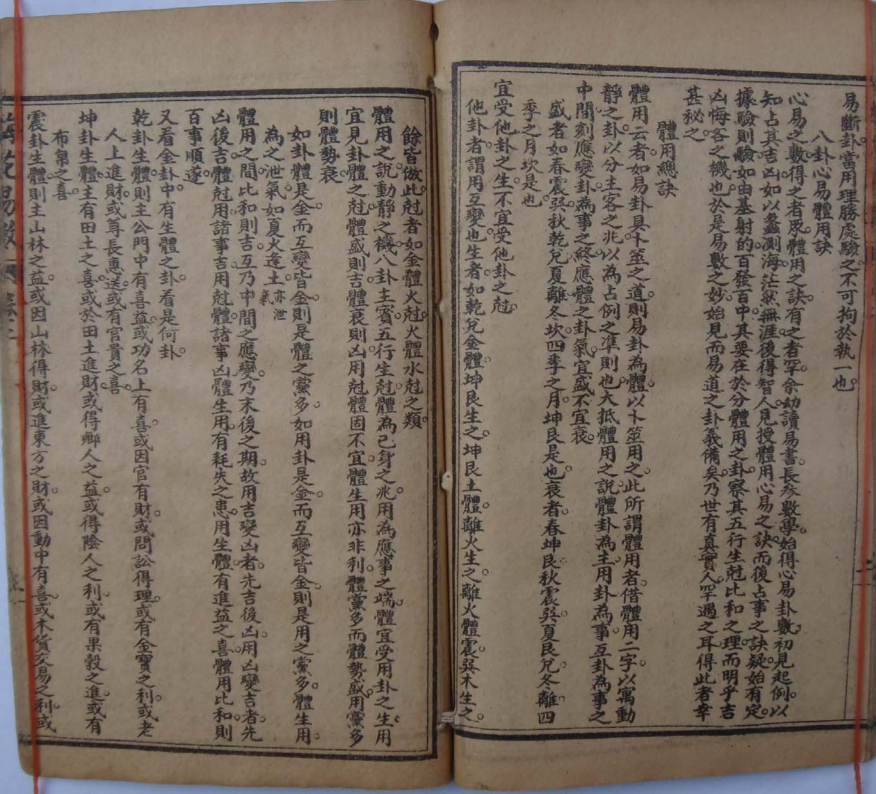 易斷卦當用理勝處驗之不可拘於執一也。
八卦心易體用訣
心易之數得之者眾體用之訣有之者罕余幼讀易書長參數學始得心易卦數初見起例以
知占其吉凶如以蠡測海茫然無涯後得智人見授體用心易之訣而後占事之訣疑始有定。
據驗則驗如由基射的百發百中其要在於分體用之卦察其五行生尅比和之理而明乎吉
凶悔吝之機也於是易數之妙始見而易道之卦義備矣乃世有真實人罕遇之耳得此者幸
甚秘之。
體用總訣
體用云者如易卦具卜筮之道則易卦為體以卜筮用之此所謂體用者借體用二字以寓動
靜之卦以分主客之兆以為占例之準則也大抵體用之說體卦為主用卦為事互卦為事之
中間刻應變卦為事之終應體之卦氣宜盛不宜衰。
盛者如春震巽秋乾兌夏離冬坎四季之月坤艮是也衰者春坤艮秋震巽夏艮兌冬離四
季之月坎是也
宜受他卦之生。不宜受他卦之尅。
他卦者謂用互變也生者如乾兌金體坤艮生之。坤艮土體離火生之。離火體震巽木生之。
餘皆倣此尅者如金體火尅火體水尅之類。
體用之說動靜之機八卦主賓五行生尅體為己身之兆用為應事之端體宜受用卦之生用
宜見卦體之尅體盛則吉體衰則凶用尅體固不宜體生用亦非利體黨多而體勢盛用黨多
則體勢衰
如卦體是金而互變皆金則是體之黨多如用卦是金而互變皆金則是用之黨多體生用
為之泄氣如夏火逢土亦泄氣
體用之間比和則吉互乃中間之應變乃末後之期故用吉變凶者先吉後凶用凶變吉者先
凶後吉體尅用諸事吉用尅體諸事凶體生用有耗失之患用生體有進益之喜體用比和則
百事順遂
又看全卦中有生體之卦看是何卦。
乾卦生體則主公門中有喜益或功名上有喜或因官有財或問訟得理或有金寶之利或老
人上進財或尊長惠送或有官貴之喜
坤卦生體主有田土之喜或於田土進財或得鄉人之益或得陰人之利或有果穀之進或有
布帛之喜
震卦生體則主山林之益或因山林得財或進東方之財或因動中有喜或木貨交易之利或